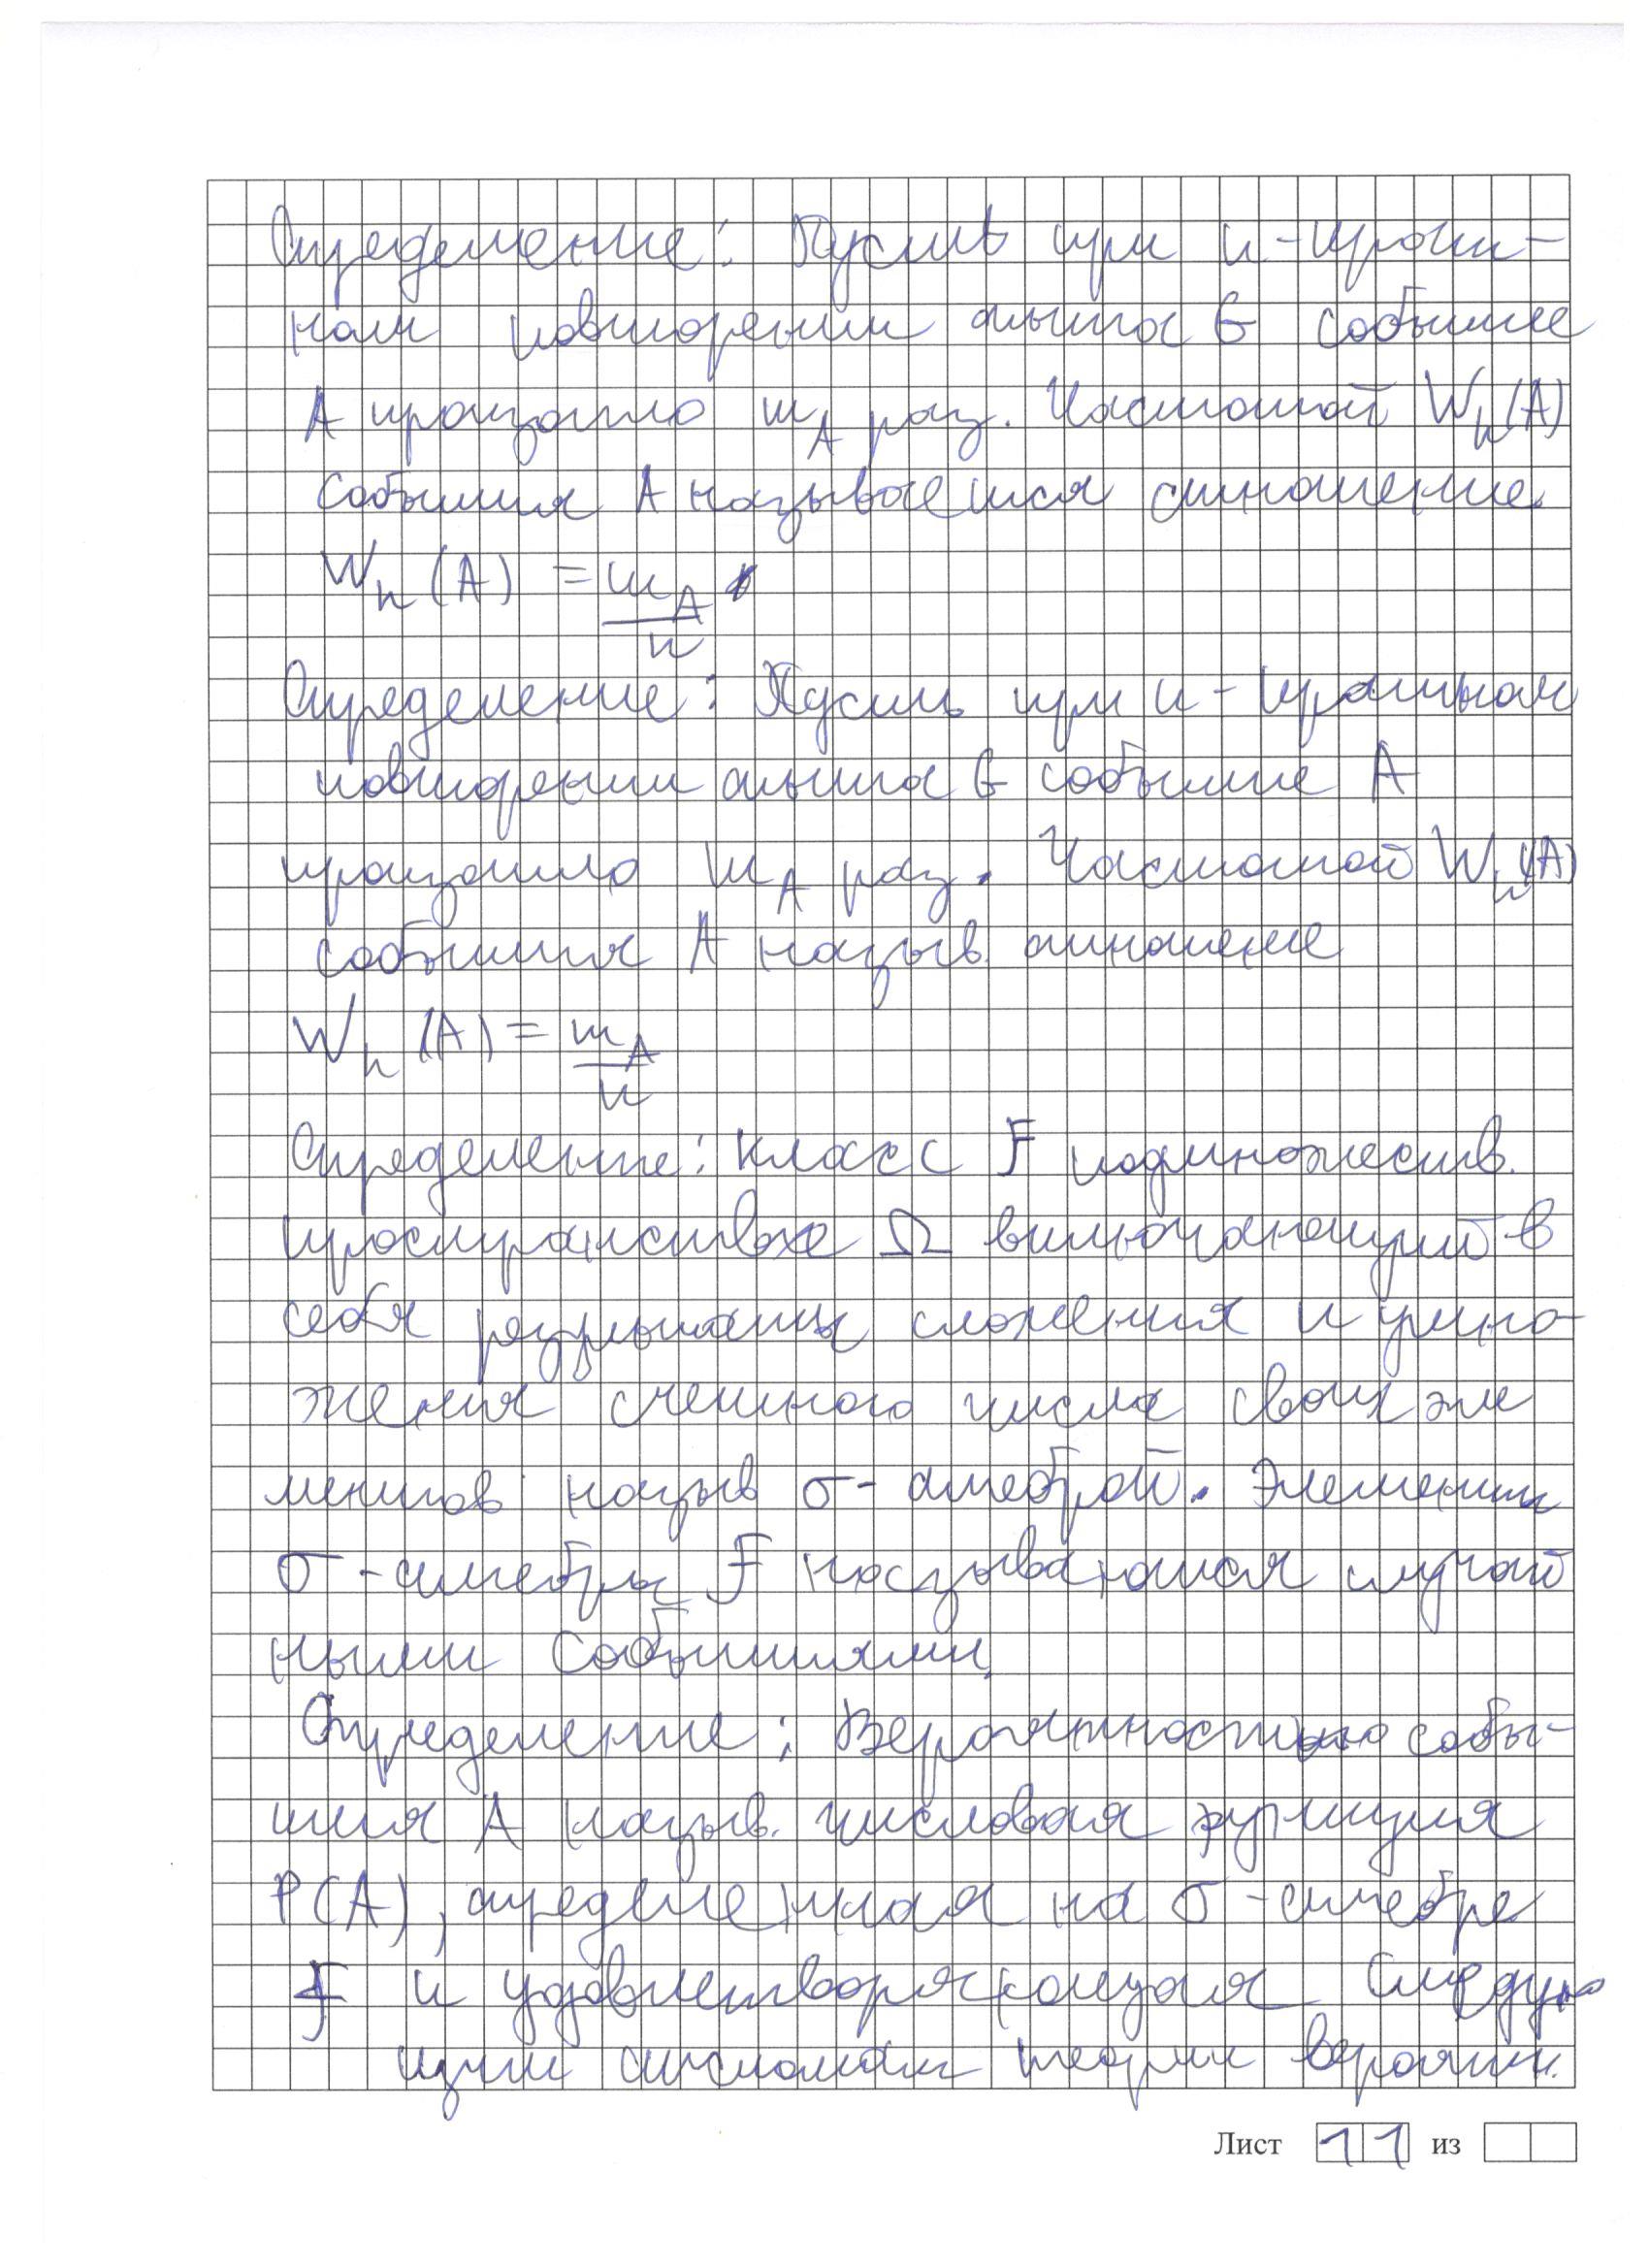 Определение: Пусть при n-крат-
ном повторении опыта G событие
A произошло m_A раз. Частотой W_n(A)
события A называется отношение
W_n(A) = m_A/n
Определение: Пусть при n-кратном
повторении опыта G событие A
произошло m_A раз. Частотой W_n(A)
события A назыв. отношение
W_n(A) = m_A/n
Определение: класс F подмножеств.
пространства Ω включающий в
себя результаты сложения и умно-
жения счетного числа своих эле
ментов назыв σ-алгеброй. Элементы
σ-алгебры F называются случай
ными событиями.
Определение: Вероятностью собы-
тия A назыв. числовая функция
P(A), определенная на σ-алгебре
F и удовлетворяющая следую
щим аксиомам теории вероятн.
Лист 11 из